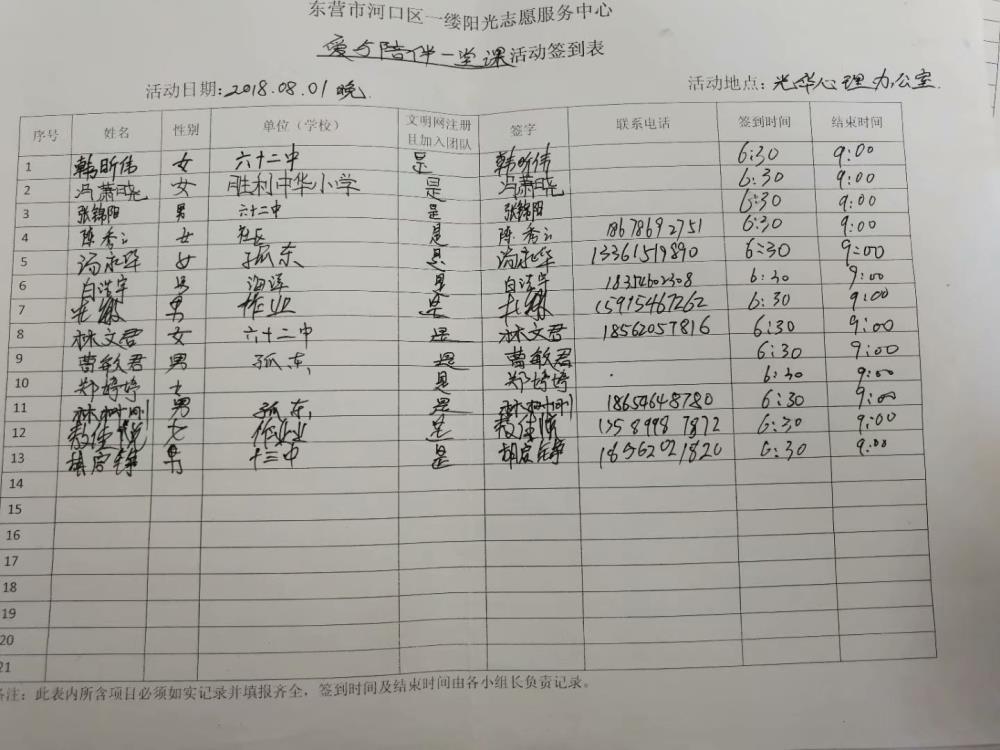 东营市河口区一缕阳光志愿服务中心
爱与陪伴一堂课活动签到表
活动日期:2018.08.01晚 活动地点:光华心理办公室
序号 姓名 性别 单位（学校） 文明网注册且加入团队 签字 联系电话 签到时间 结束时间
1 韩昕伟 女 六十二中 是 韩昕伟 6:30 9:00
2 冯萧晓 女 胜利中华小学 是 冯萧晓 6:30 9:00
3 张锦阳 男 六十二中 是 张锦阳 6:30 9:00
4 陈秀 女 社区 是 陈秀 18678692751 6:30 9:00
5 汤永华 女 孤东 是 汤永华 13361519890 6:30 9:00
6 白浩宇 男 海洋 是 白浩宇 18354602308 6:30 9:00
7 男 作业 是 15915467262 6:30 9:00
8 林文君 女 六十二中 是 林文君 18562057816 6:30 9:00
9 曹敏君 男 孤东 是 曹敏君 6:30 9:00
10 郑婷婷 女 是 郑婷婷 6:30 9:00
11 林树刚 男 孤东 是 林树刚 18654648780 6:30 9:00
12 女 作业 是 13589987872 6:30 9:00
13 男 十三中 是 18562021820 6:30 9:00
14
15
16
17
18
19
20
21
备注：此表内所含项目必须如实记录并填报齐全，签到时间及结束时间由各小组长负责记录。